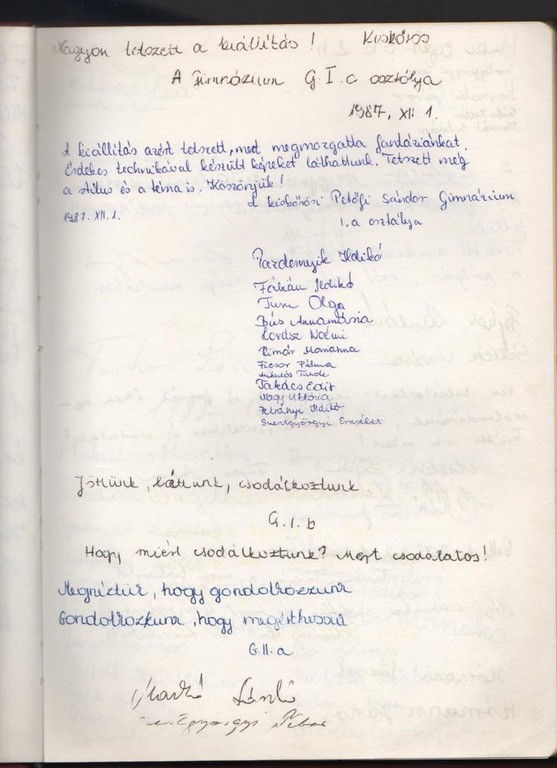 Nagyon tetszett a kiállítás! Kiskőrös
A Gimnázium G.I.c osztálya
1987. XII. 1.
A kiállítás azért tetszett, mert megmozgatta fantáziánkat.
Érdekes technikával készült képeket láthattunk. Tetszett még
a stílus és a téma is. Köszönjük!
A kiskőrösi Petőfi Sándor Gimnázium
1987. XII. 1.
1.a osztálya
Ildikó
Fábián Ildikó
Olga
Bús Annamária
Noémi
Marianna
Ficsor Pálma
Tünde
Takács Edit
Nagy Viktória
Ildikó
Szentgyörgyi Erzsébet
Jöttünk, láttunk, csodálkoztunk
G.I.b
Hogy miért csodálkoztunk? Mert csodálatos!
Megnéztük, hogy gondolkozzunk
Gondolkoztunk, hogy megérthessük
G.II.a
László
Szentgyörgyi